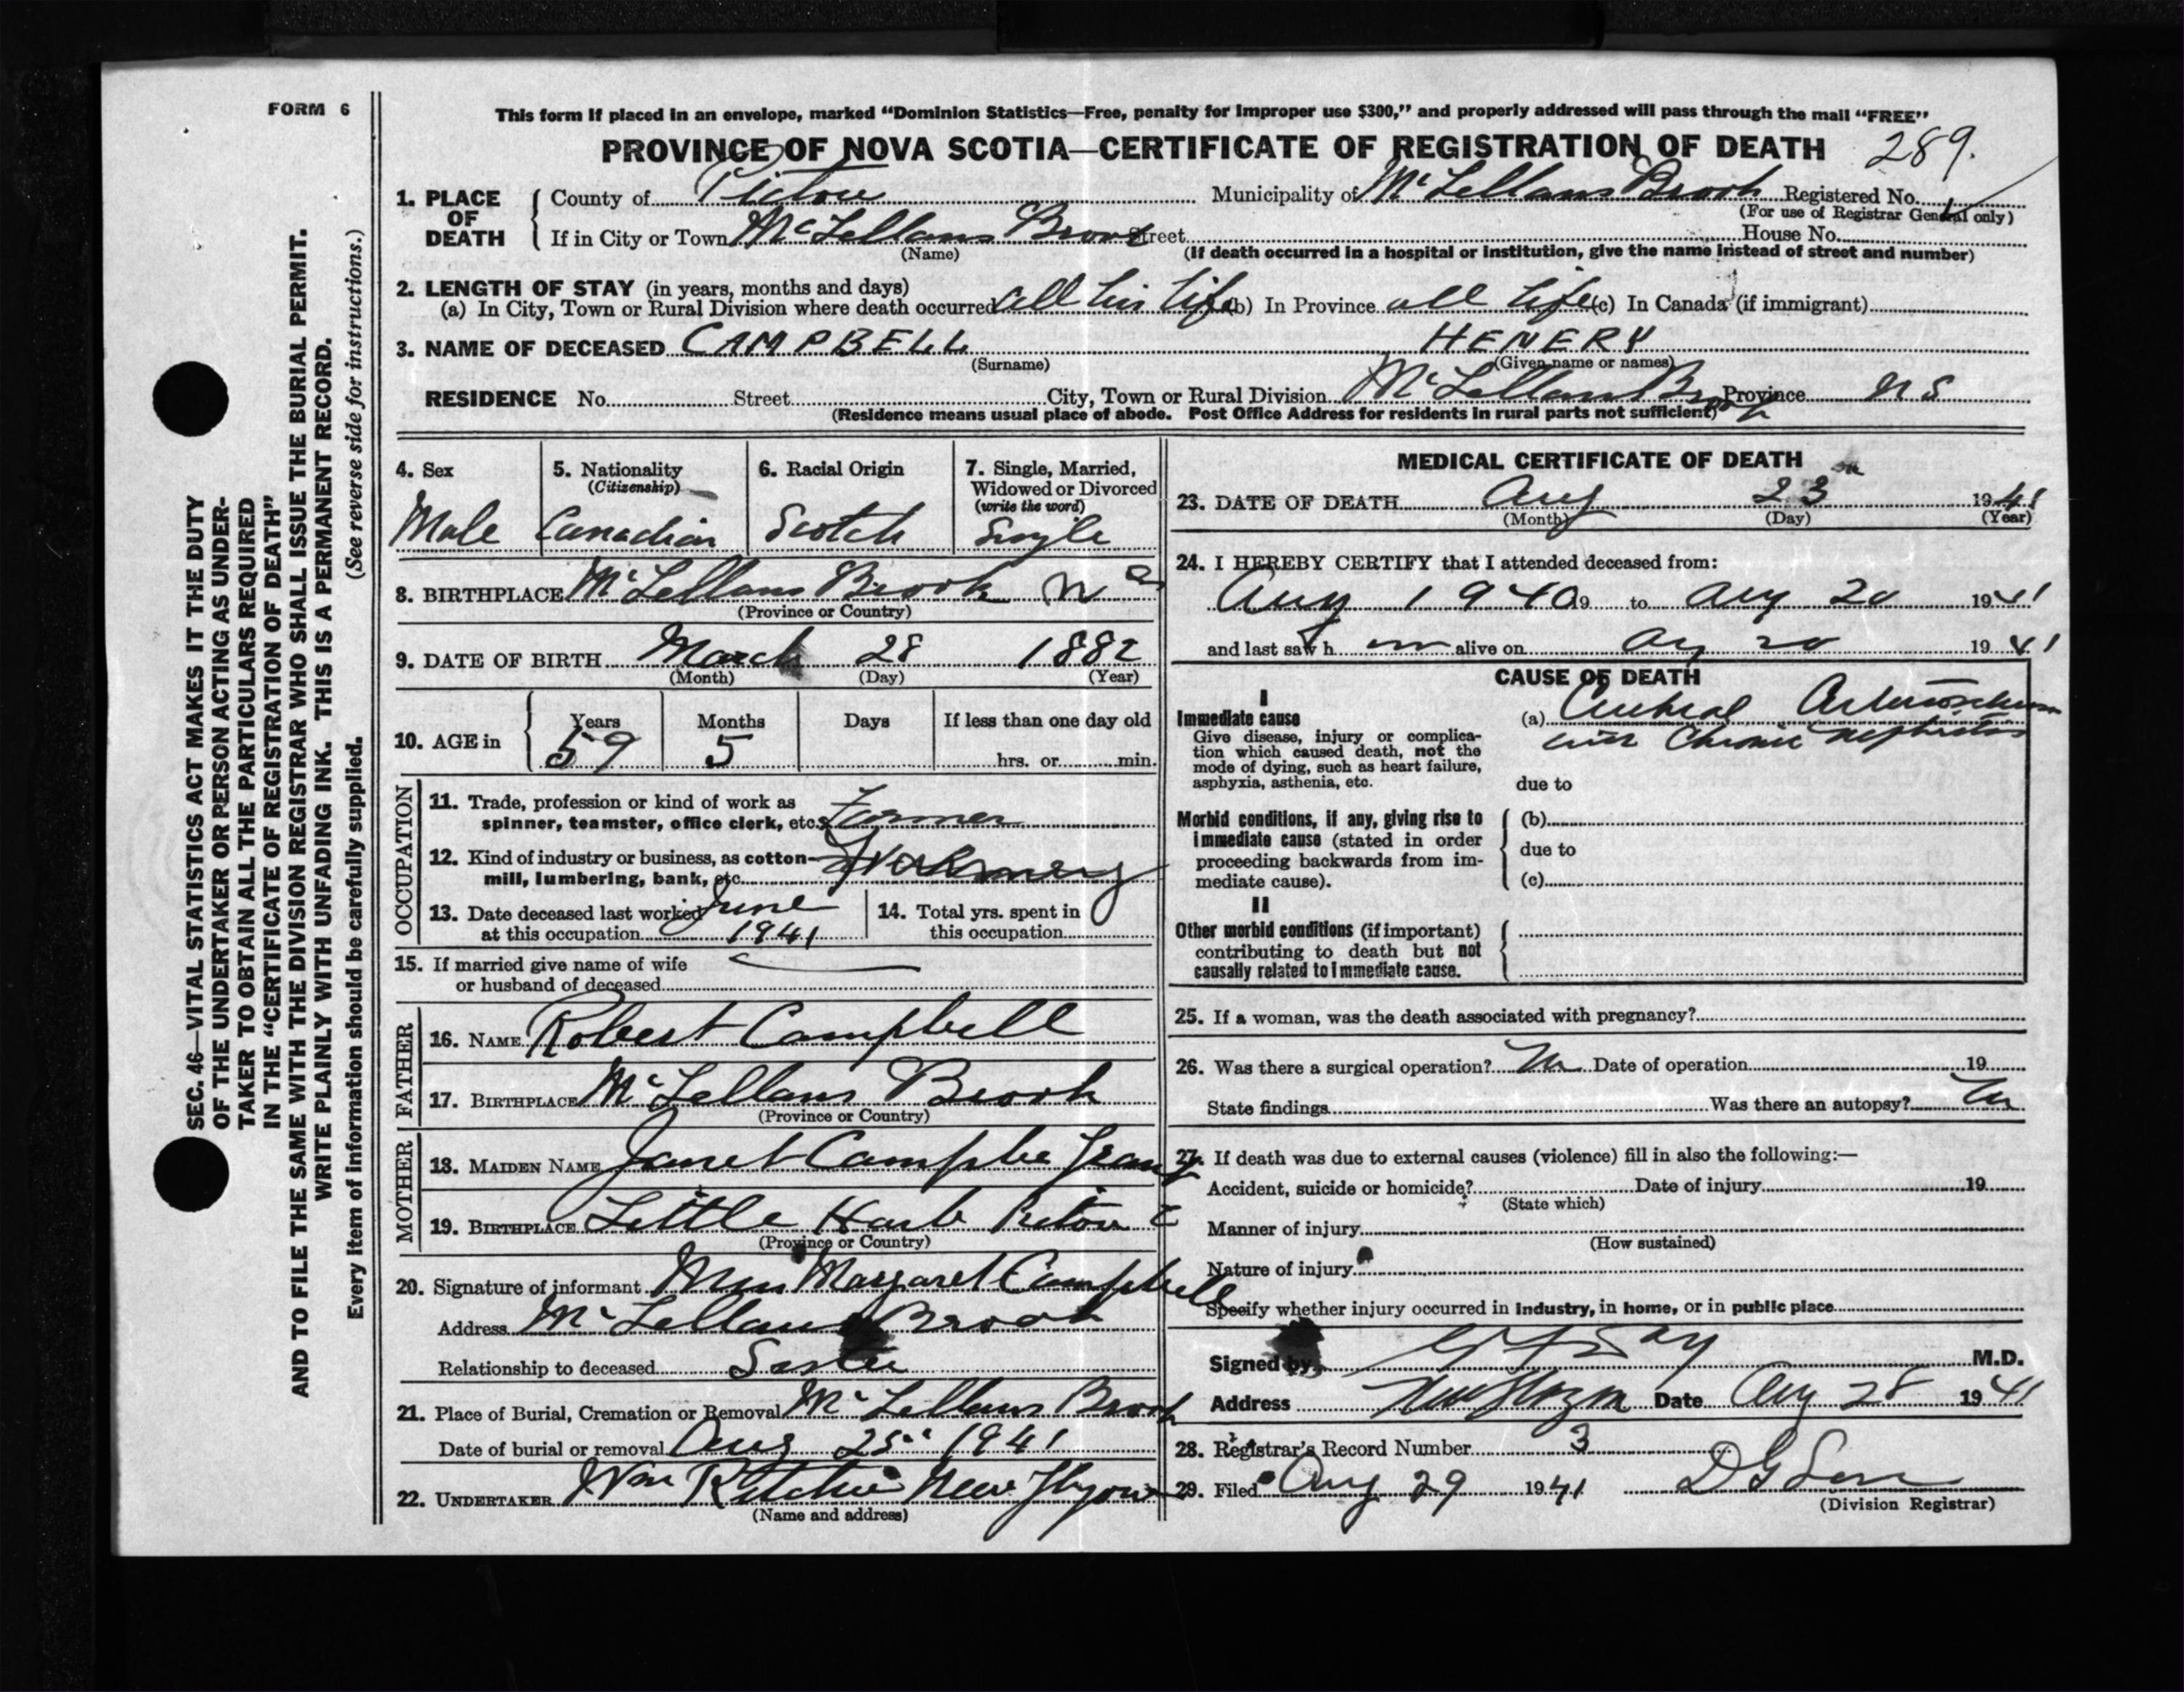 FORM 6
This form if placed in an envelope, marked “Dominion Statistics—Free, penalty for improper use $300,” and properly addressed will pass through the mail “FREE”
PROVINCE OF NOVA SCOTIA—CERTIFICATE OF REGISTRATION OF DEATH 289.
1. PLACE OF DEATH
County of Pictou Municipality of McLellans Brook Registered No.
(For use of Registrar General only)
If in City or Town McLellans Brook Street House No.
(Name) (If death occurred in a hospital or institution, give the name instead of street and number)
2. LENGTH OF STAY (in years, months and days)
(a) In City, Town or Rural Division where death occurred all his life (b) In Province all life (c) In Canada (if immigrant)
3. NAME OF DECEASED CAMPBELL HENERY
(Surname) (Given name or names)
RESIDENCE No. Street City, Town or Rural Division McLellans Brook Province N S
(Residence means usual place of abode. Post Office Address for residents in rural parts not sufficient)
4. Sex
Male
5. Nationality
(Citizenship)
Canadian
6. Racial Origin
Scotch
7. Single, Married,
Widowed or Divorced
(write the word)
Single
8. BIRTHPLACE McLellans Brook N S
(Province or Country)
9. DATE OF BIRTH March 28 1882
(Month) (Day) (Year)
10. AGE in
Years Months Days If less than one day old
59 5 hrs. or min.
OCCUPATION
11. Trade, profession or kind of work as
spinner, teamster, office clerk, etc. Farmer
12. Kind of industry or business, as cotton-
mill, lumbering, bank, etc.
13. Date deceased last worked June
at this occupation 1941
14. Total yrs. spent in
this occupation
15. If married give name of wife
or husband of deceased
FATHER
16. NAME Robert Campbell
17. BIRTHPLACE McLellans Brook
(Province or Country)
MOTHER
18. MAIDEN NAME Janet Campbe Grant
19. BIRTHPLACE Little Harb Pictou
(Province or Country)
20. Signature of informant Margaret Campbell
Address McLellans Brook
Relationship to deceased Sister
21. Place of Burial, Cremation or Removal McLellans Brook
Date of burial or removal Aug 25 1941
22. UNDERTAKER Wm Ritchie New Glasgow
(Name and address)
MEDICAL CERTIFICATE OF DEATH
23. DATE OF DEATH Aug 23 1941
(Month) (Day) (Year)
24. I HEREBY CERTIFY that I attended deceased from:
Aug 1940 19 to Aug 20 1941
and last saw h im alive on Aug 20 1941
CAUSE OF DEATH
I
Immediate cause
Give disease, injury or complica-
tion which caused death, not the
mode of dying, such as heart failure,
asphyxia, asthenia, etc.
(a) Cerebral
with Chronic nephritis
due to
Morbid conditions, if any, giving rise to
immediate cause (stated in order
proceeding backwards from im-
mediate cause).
(b)
due to
(c)
II
Other morbid conditions (if important)
contributing to death but not
causally related to immediate cause.
25. If a woman, was the death associated with pregnancy?
26. Was there a surgical operation? No Date of operation 19
State findings Was there an autopsy? No
27. If death was due to external causes (violence) fill in also the following:—
Accident, suicide or homicide? Date of injury 19
(State which)
Manner of injury
(How sustained)
Nature of injury
Specify whether injury occurred in industry, in home, or in public place
Signed by M.D.
Address New Glasgow Date Aug 28 1941
28. Registrar's Record Number 3
29. Filed Aug 29 1941
(Division Registrar)
SEC. 46—VITAL STATISTICS ACT MAKES IT THE DUTY
OF THE UNDERTAKER OR PERSON ACTING AS UNDER-
TAKER TO OBTAIN ALL THE PARTICULARS REQUIRED
IN THE “CERTIFICATE OF REGISTRATION OF DEATH”
AND TO FILE THE SAME WITH THE DIVISION REGISTRAR WHO SHALL ISSUE THE BURIAL PERMIT.
WRITE PLAINLY WITH UNFADING INK. THIS IS A PERMANENT RECORD.
Every item of information should be carefully supplied. (See reverse side for instructions.)